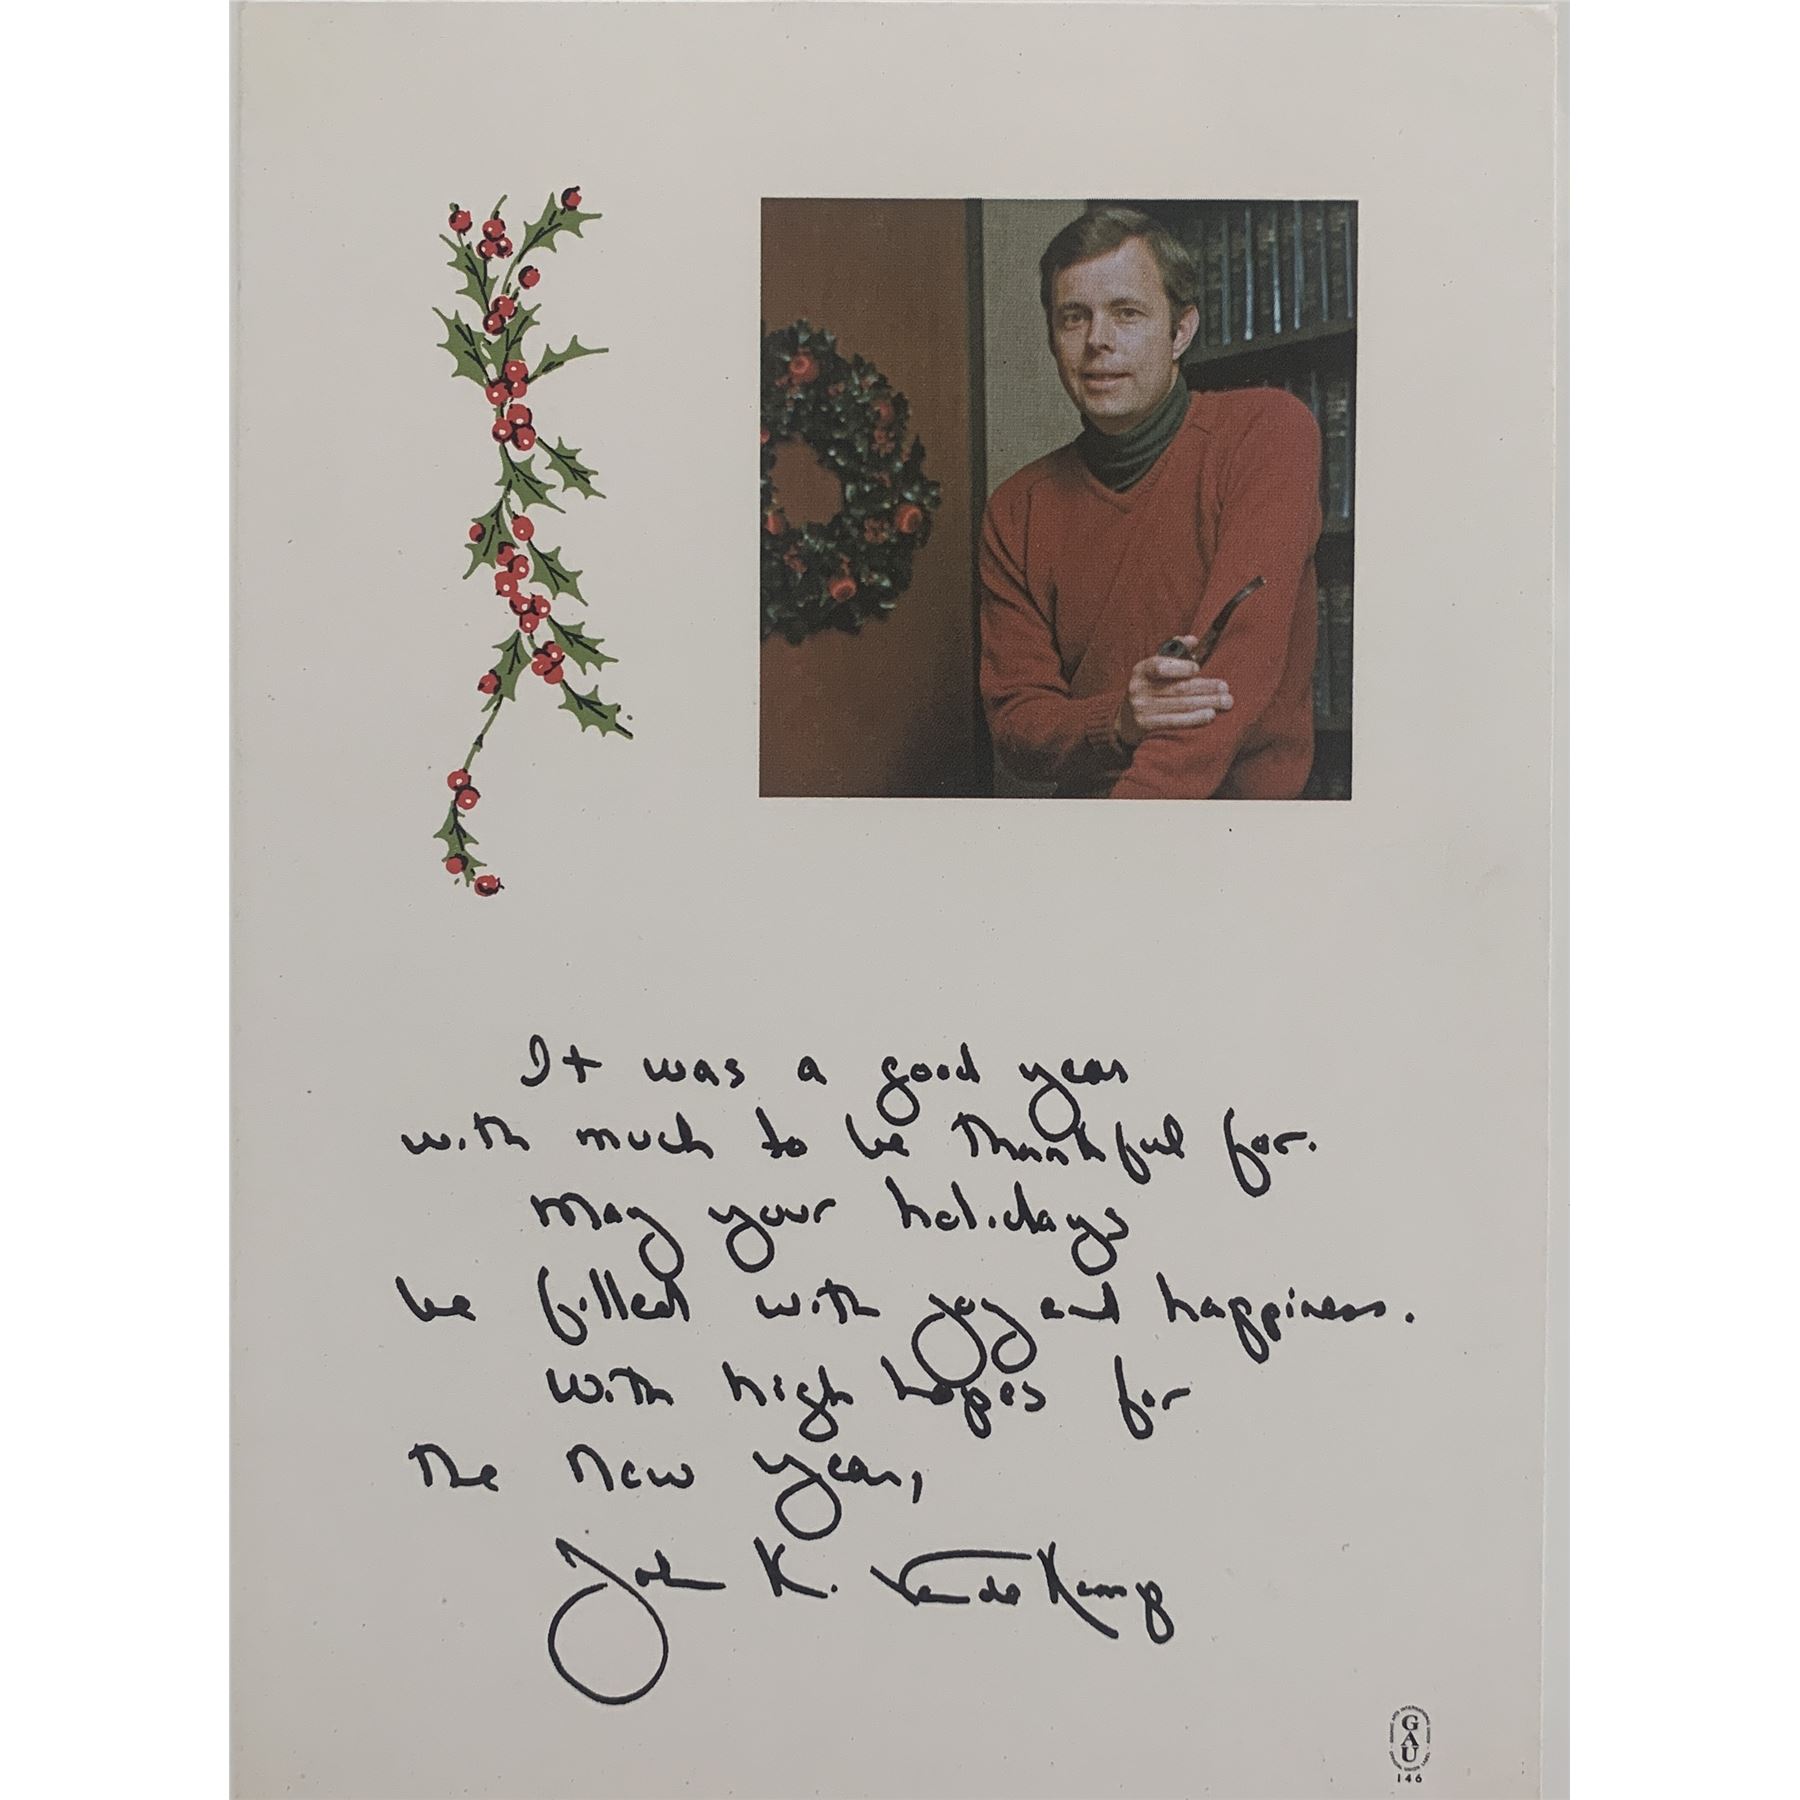 It was a good year
with much to be thankful for.
May your holidays
be filled with joy and happiness.
With high hopes for
the new year,
John K. Van de Kamp
GAU
146